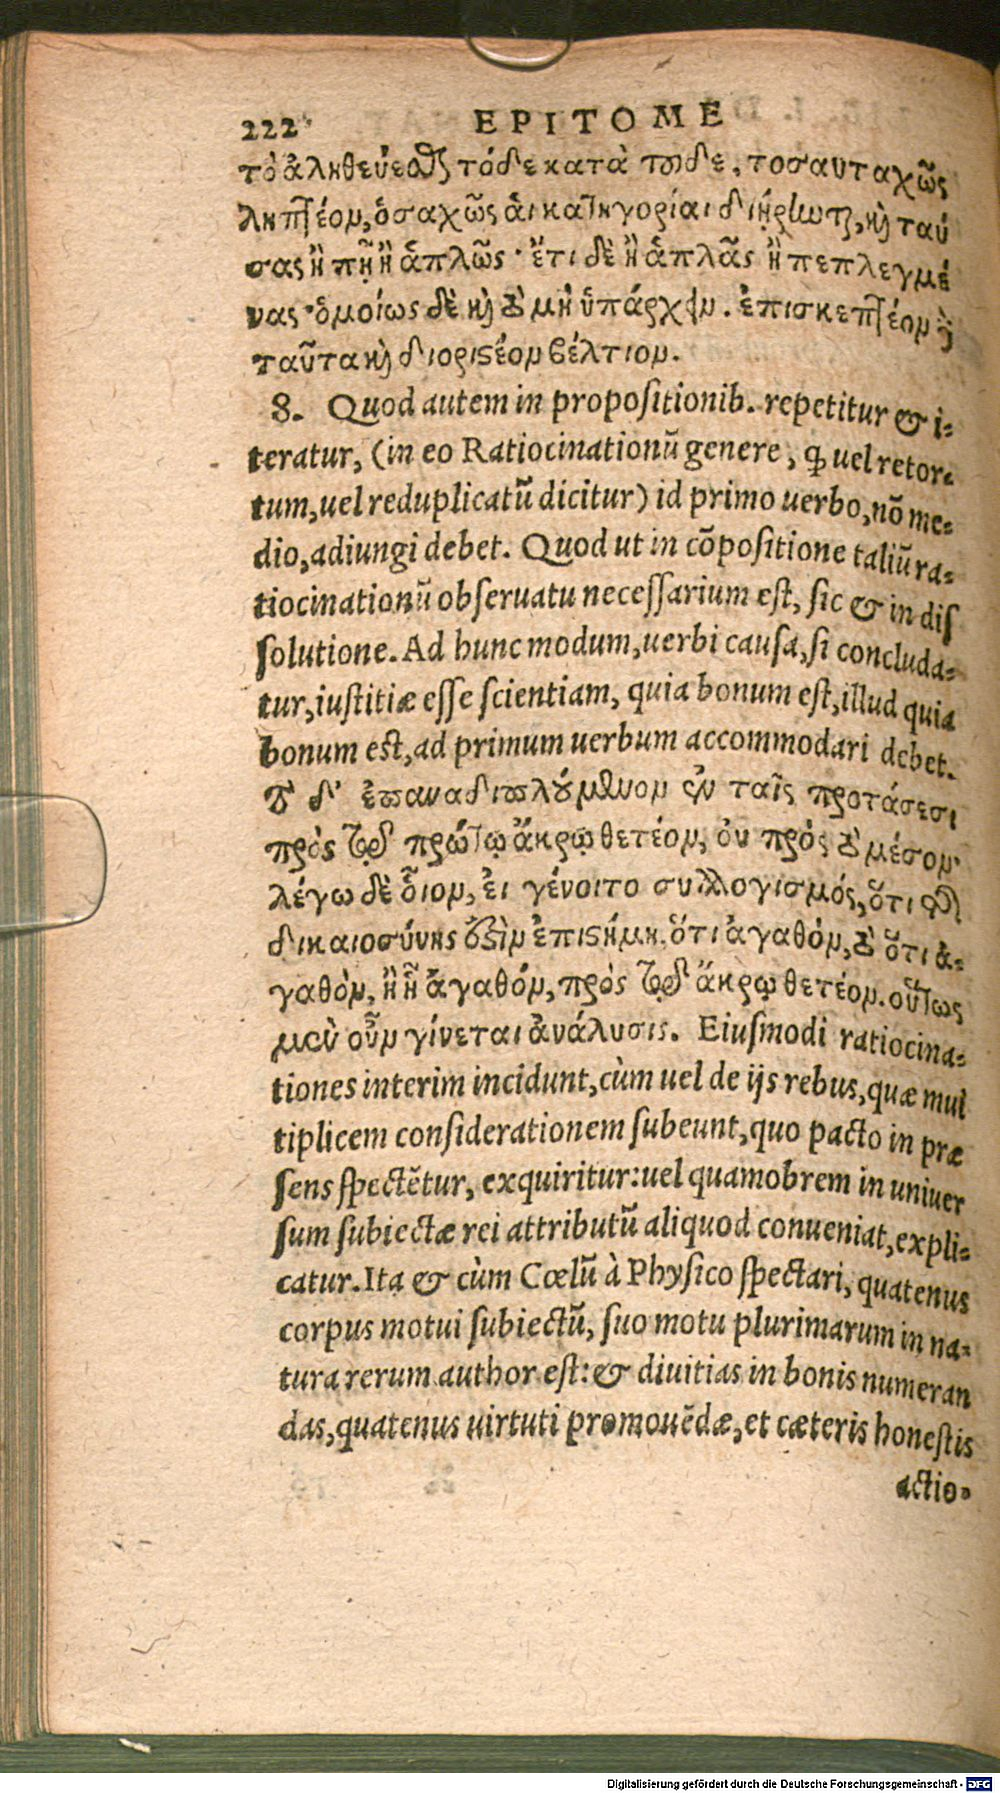 222 EPITOME
τὸ ἀληθεύεσθαι τόδε κατὰ τοῦδε, τοσαυταχῶς
ληπτέομ, ὁσαχῶς ἁι κατηγορίαι διῄρηνται, καὶ ταύ
σας ἢ πῆ ἢ ἁπλῶς· ἔτι δὲ ἢ ἁπλᾶς ἢ πεπλεγμέ
νας· ὁμοίως δὲ καὶ τὸ μὴ ὑπάρχειμ. ἐπισκεπτέομ δὲ
ταῦτα καὶ διοριστέομ βέλτιομ.
8. Quod autem in propositionib. repetitur & i-
teratur, (in eo Ratiocinationū genere, qđ uel retor-
tum, uel reduplicatū dicitur) id primo uerbo, nō me-
dio, adiungi debet. Quod ut in cōpositione taliū ra-
tiocinationū obseruatu necessarium est, sic & in dis
solutione. Ad hunc modum, uerbi causa, si concluda-
tur, iustitiæ esse scientiam, quia bonum est, illud quia
bonum est, ad primum uerbum accommodari debet.
τὸ δ' ἐπαναδιπλούμενομ ἐν ταῖς προτάσεσι
πρὸς τῷ πρώτῳ ἄκρῳ θετέομ, ὀυ πρὸς τὸ μέσομ·
λέγω δὲ ὅιομ, ἐι γένοιτο συλλογισμός, ὅτι τῆς
δικαιοσύνης ἐστὶμ ἐπιστήμη. ὅτι ἀγαθόμ, τὸ ὅτι ἀ-
γαθὸμ, ἢ ᾗ ἀγαθόμ, πρὸς τῷ ἄκρῳ θετέομ. οὕτως
μὲν οὖμ γίνεται ἀνάλυσις. Eiusmodi ratiocina-
tiones interim incidunt, cùm uel de ijs rebus, quæ mul
tiplicem considerationem subeunt, quo pacto in præ
sens spectētur, exquiritur: uel quamobrem in uniuer
sum subiectæ rei attributū aliquod conueniat, expli-
catur. Ita & cùm Cœlū à Physico spectari, quatenus
corpus motui subiectū, suo motu plurimarum in na-
tura rerum author est: & diuitias in bonis numeran
das, quatenus uirtuti promouēdæ, et cæteris honestis
actio-
Digitalisierung gefördert durch die Deutsche Forschungsgemeinschaft - DFG